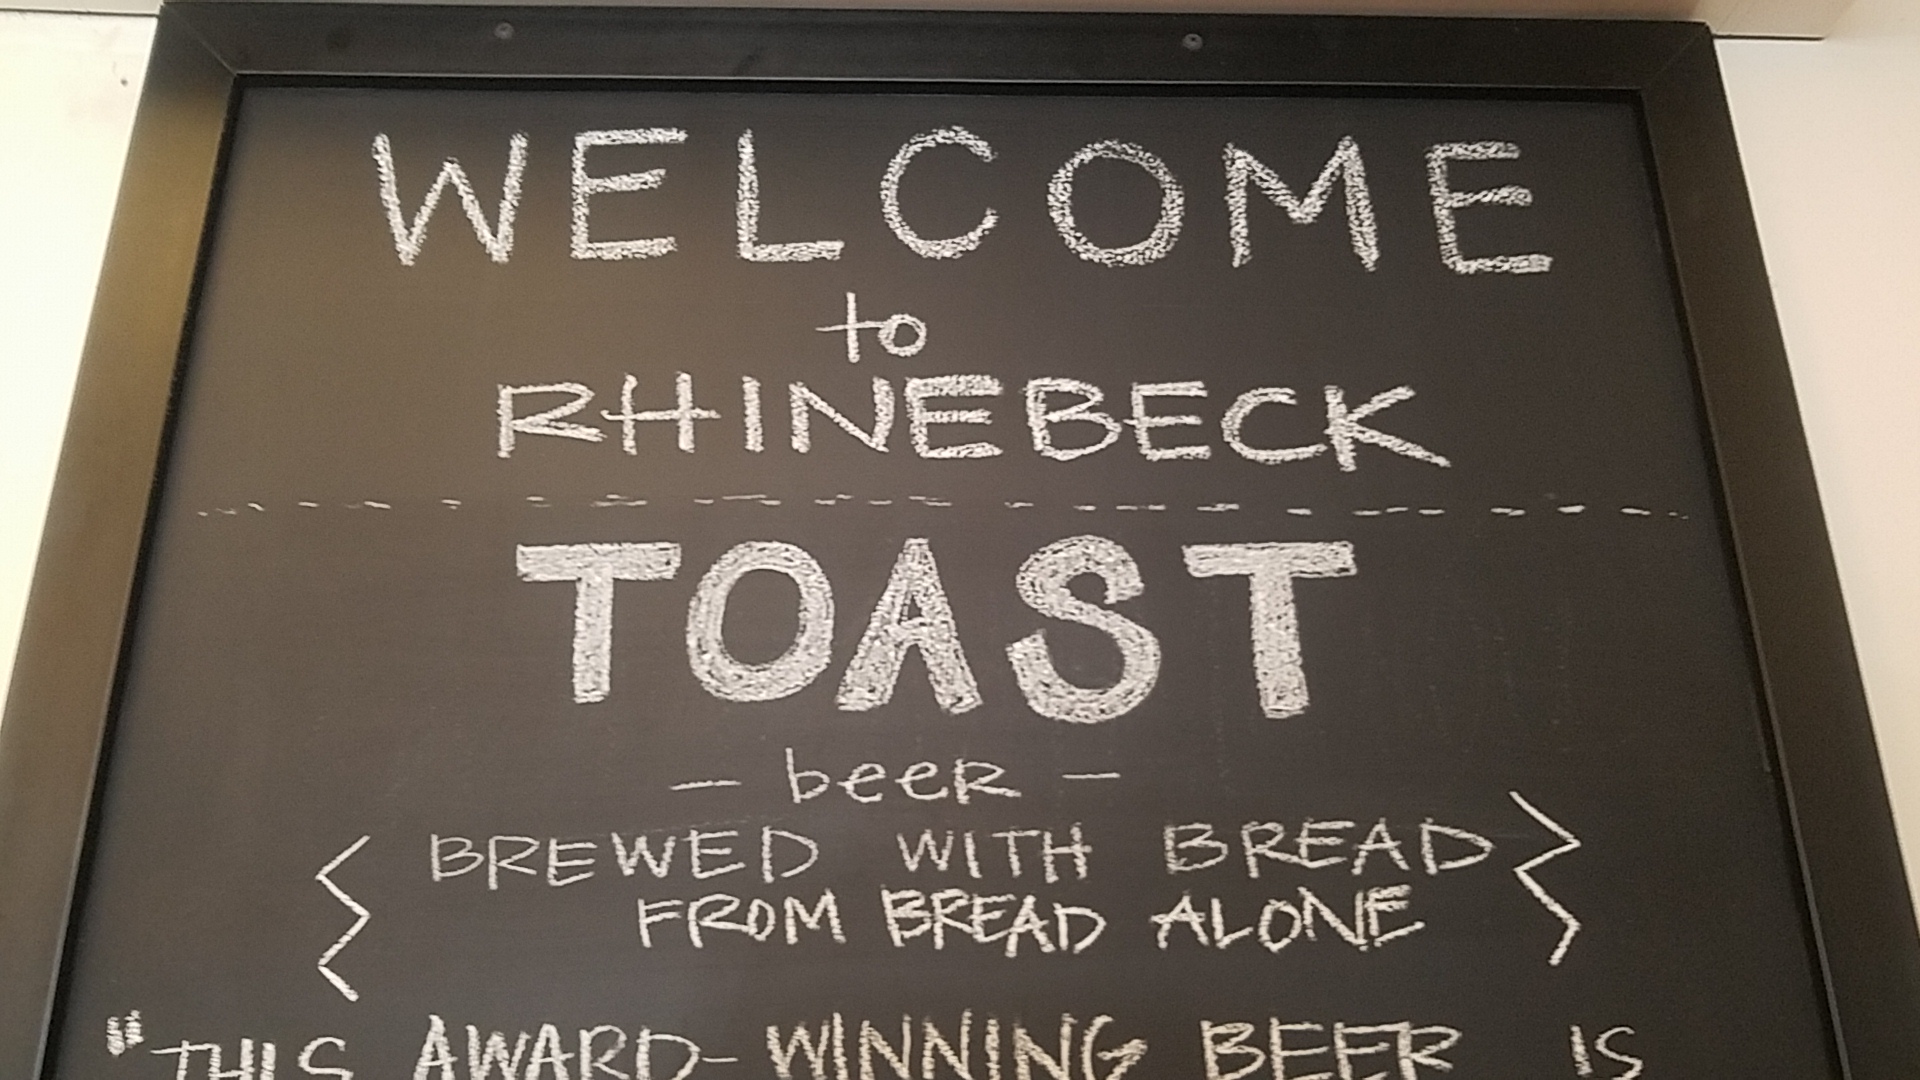 WELCOME
to
RHINEBECK
TOAST
- beer -
BREWED WITH BREAD
FROM BREAD ALONE
"THIS AWARD-WINNING BEER IS